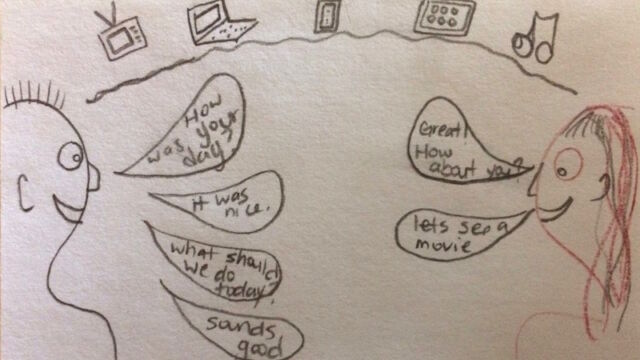 How
was your
day?
Great!
How
about you?
it was
nice.
what should
we do
today?
lets see a
movie
sounds
good